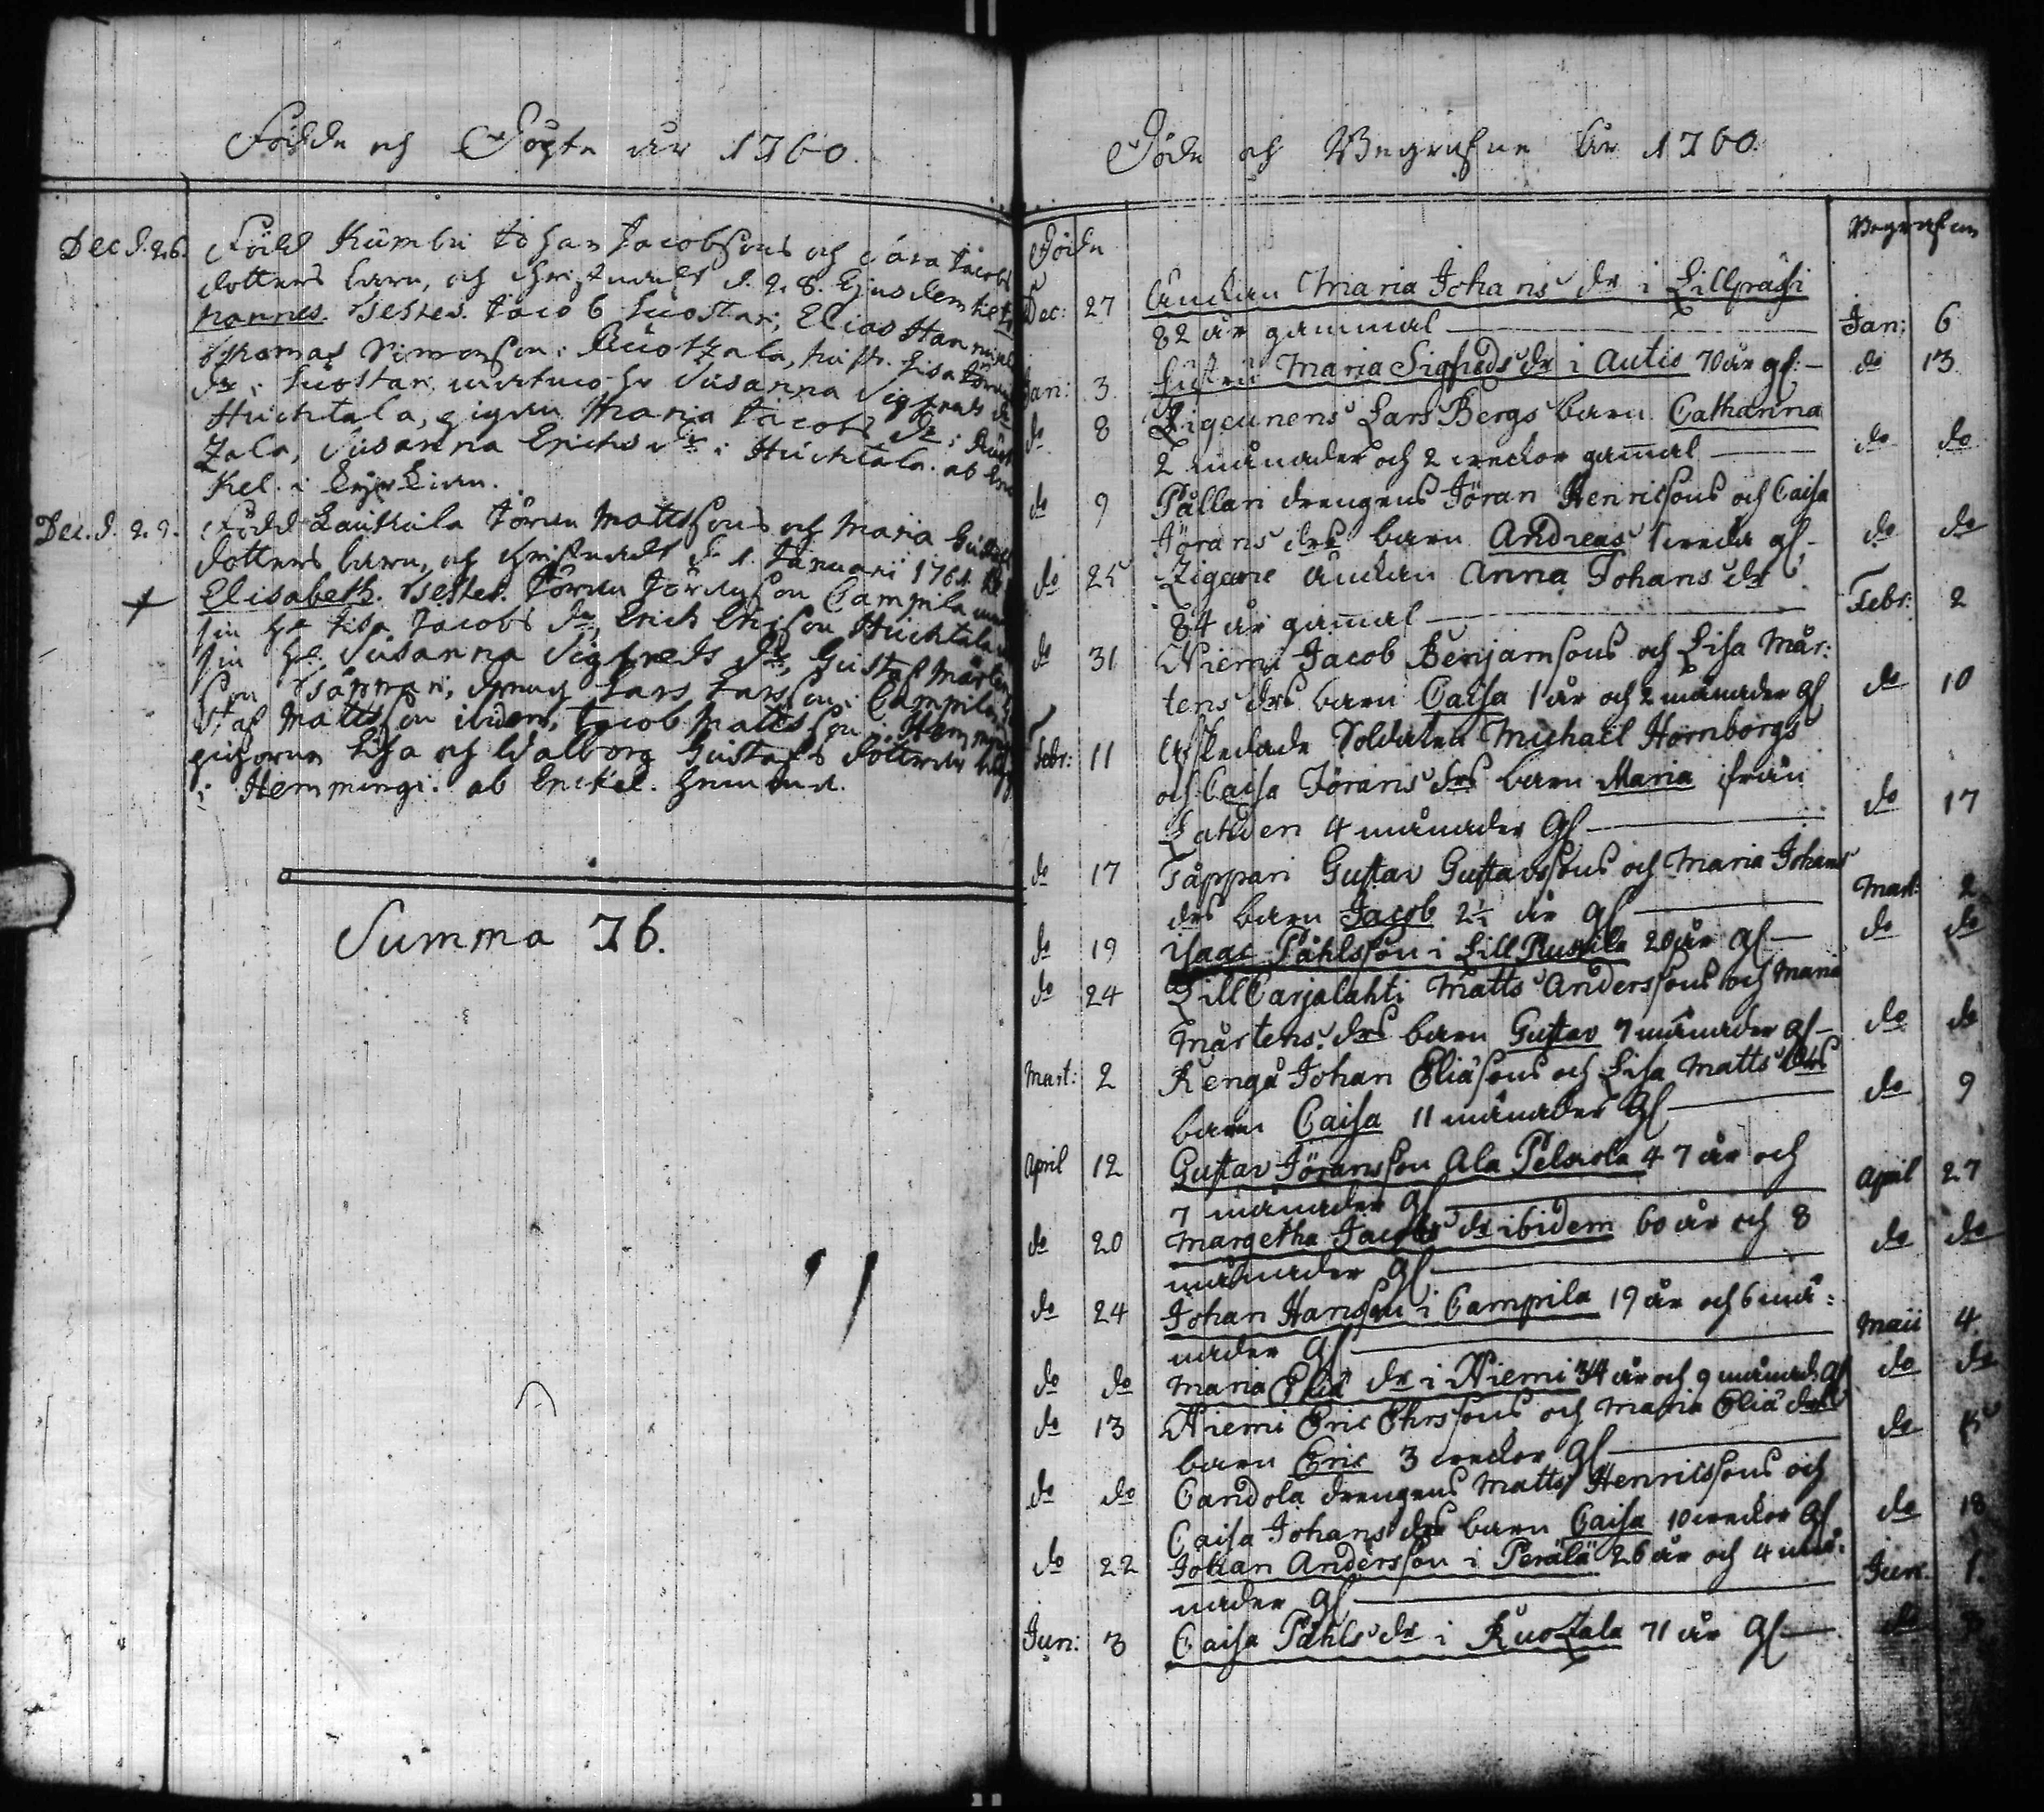 Födde och Döpte år 1760.
Dec. d. 26. Född Kumbu Johan Jacobsons och Sara Jacobs
dotters barn, och christnades d. 28. Ejusdem
hannes. Testes. Jacob Suostari, Elias
Thomas Simonson i Ruotzala, hustr. Lisa
dr i Suostari Susanna Sigfreds dr
Huichtala, pigan Maria Jacobs dr i
zala, Susanna Erichs dr i Huichtala. ab
kel. i Kyrkian.
Dec. d. 29. Född Lauthila Jöran Mattssons och Maria
dotters barn, och christnades d. 1. Januari 1761.
Elisabeth. Testes. Jöran Jöranson Campila
sin h. Lisa Jacobs dr, Erich Erichson Huichtala
sin h. Susanna Sigfreds dr, Gustaf
Son Tåppari, dreng Lars Larsson i Campila,
staf Mattsson ibidem, Jacob Mattsson i
pigorna Lisa och Walborg Gustafs döttrar
i Hemmingi. ab Enckel. hemma.
Summa 76.
Döde och Begrafne år 1760
Döde
Begrafne
Dec: 27 Änckan Maria Johans dr i Lillpräsi
82 år gammal Jan: 6
Jan: 3 Hustru Maria Sigfreds dr i Autis 70 år gl. do 13
do 8 Zigeunens Lars Bergs barn Catharina
2 månader och 2 weckor gamal do do
do 9 Pällari drengens Jöran Henricsons och Caisa
Jörans drs barn Andreas 1 wecka gl. do do
do 25 änckan Anna Johans dr
84 år gamal Febr: 2
do 31 Niemi Jacob Benjamsons och Lisa Mår:
tens drs barn Caisa 1 år och 2 månader gl do 10
Febr: 11 Afskedade Soldaten Michael Hornborgs
och Caisa Jörans drs barn Maria ifrån
Lahden 4 månader gl do 17
do 17 Tåppari Gustav Gustavssons och Maria Johans
drs barn Jacob 2½ år gl Mart: 2
do 19 Isaac Påhlsson i Lill Ruskila 20 år gl do do
do 24 Lill Carjalahti Matts Anderssons och Maria
Mårtens drs barn Gustav 7 månader gl do do
Mart: 2 Kengä Johan Eliäsons och Lisa Matts drs
barn Caisa 11 månader gl do 9
April 12 Gustav Jöransson Ala Pelkola 47 år och
7 månader gl April 27
do 20 Margetha Jacobs dr ibidem 60 år och 8
månader gl do do
do 24 Johan Hansson i Campila 19 år och 6 må:
nader gl Maii 4
do do Maria Eliä dr i Niemi 34 år och 9 månad. gl do do
do 13 Niemi Eric Ehrssons och Maria Eliä drs
barn Eric 3 weckor gl do
do do Candola drengens Matts Henricssons och
Caisa Johans drs barn Caisa 10 weckor gl do 18
do 22 Johan Andersson i Perälä 26 år och 4 må:
nader gl Jun: 1.
Jun: 3 Caisa Påhls dr i Ruotzala 71 år gl do